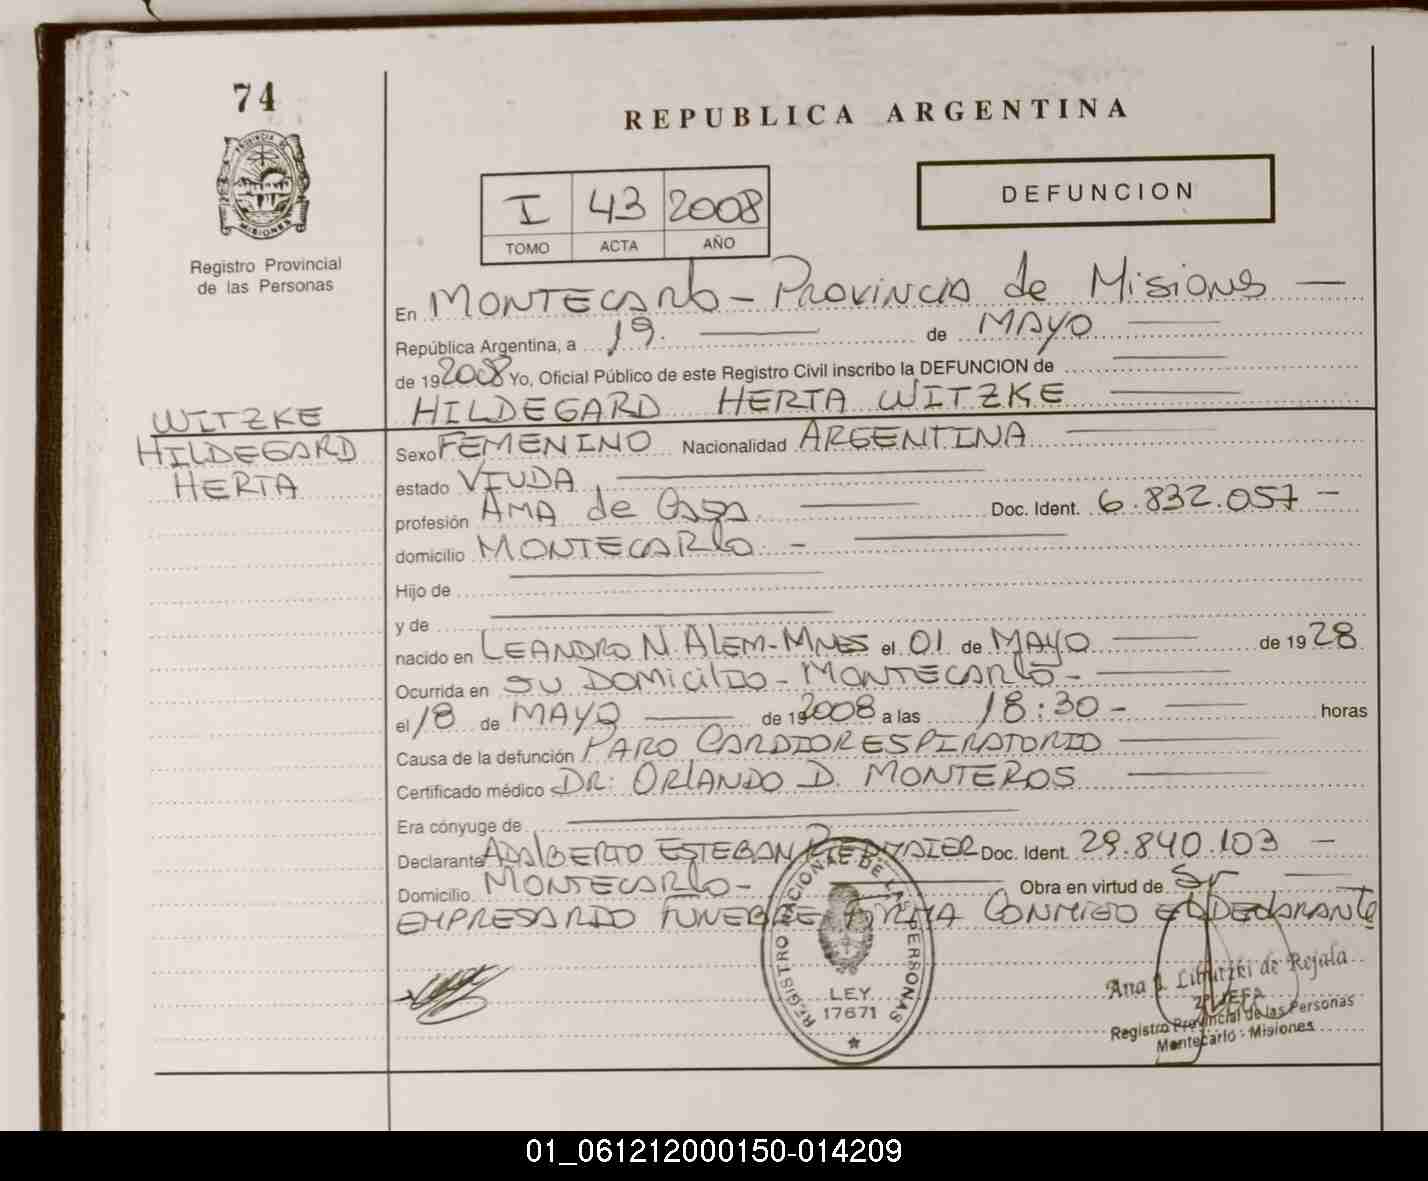 74
REPUBLICA ARGENTINA
PROVINCIA DE
MISIONES
Registro Provincial
de las Personas
I 43 2008
TOMO ACTA AÑO
DEFUNCION
En MONTECARLO - PROVINCIA de MISIONES —
República Argentina, a 19. — de MAYO —
de 192008 Yo, Oficial Público de este Registro Civil inscribo la DEFUNCION de —
HILDEGARD HERTA WITZKE —
WITZKE
HILDEGARD
HERTA
Sexo FEMENINO Nacionalidad ARGENTINA —
estado VIUDA —
profesión AMA de CASA — Doc. Ident. 6.832.057 —
domicilio MONTECARLO. - —
Hijo de —
y de —
nacido en LEANDRO N. ALEM-MNES el 01 de MAYO — de 1928
Ocurrida en SU DOMICILIO - MONTECARLO - —
el 18 de MAYO — de 192008 a las 18:30 - — horas
Causa de la defunción PARO CARDIORESPIRATORIO —
Certificado médico DR: ORLANDO D. MONTEROS —
Era cónyuge de —
Declarante ADALBERTO ESTEBAN Doc. Ident. 29.840.103 —
Domicilio MONTECARLO - — Obra en virtud de Sr —
EMPRESARIO FUNEBRE FIRMA CONMIGO EL DECLARANTE
REGISTRO NACIONAL DE LAS PERSONAS
LEY
17671
Ana de Rejala
2º JEFA
Registro Provincial de las Personas
Montecarlo - Misiones
01_061212000150-014209